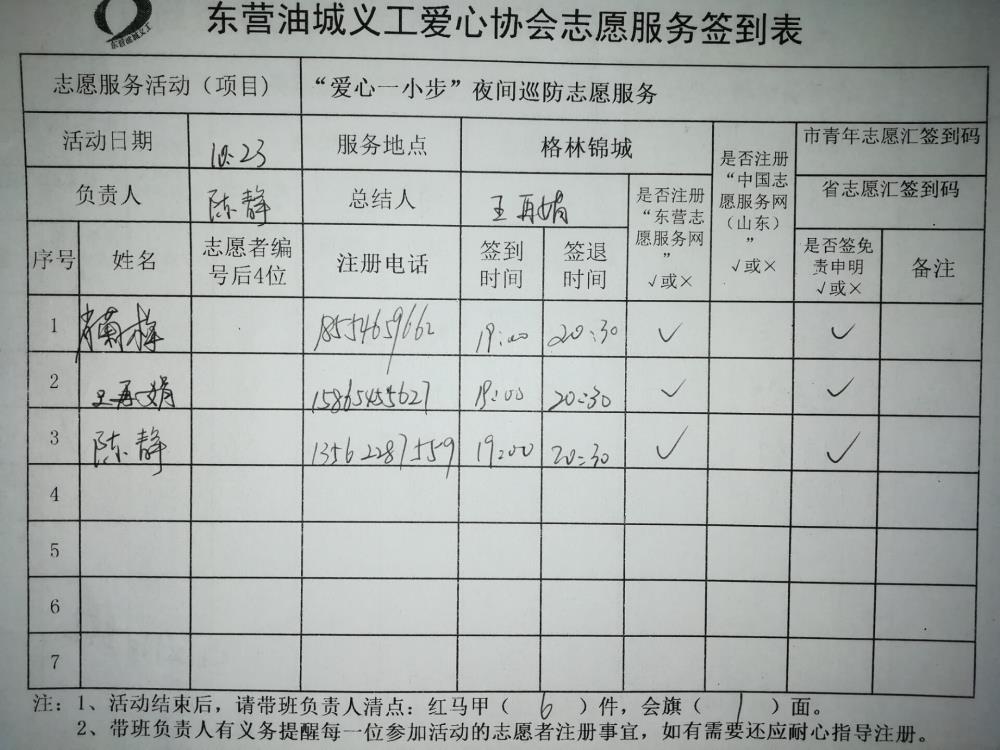 东营油城义工
东营油城义工爱心协会志愿服务签到表
志愿服务活动（项目） “爱心一小步”夜间巡防志愿服务
活动日期 10.23 服务地点 格林锦城 是否注册“中国志愿服务网（山东）” √或× 市青年志愿汇签到码
负责人 陈静 总结人 王再娟 是否注册“东营志愿服务网” √或× 省志愿汇签到码
序号 姓名 志愿者编号后4位 注册电话 签到时间 签退时间 是否签免责申明 √或× 备注
1 18554659662 19:00 20:30 ✓ ✓
2 王再娟 15865455627 19:00 20:30 ✓ ✓
3 陈静 13562287559 19:00 20:30 ✓ ✓
4
5
6
7
注：1、活动结束后，请带班负责人清点：红马甲（ 6 ）件，会旗（ 1 ）面。
2、带班负责人有义务提醒每一位参加活动的志愿者注册事宜，如有需要还应耐心指导注册。